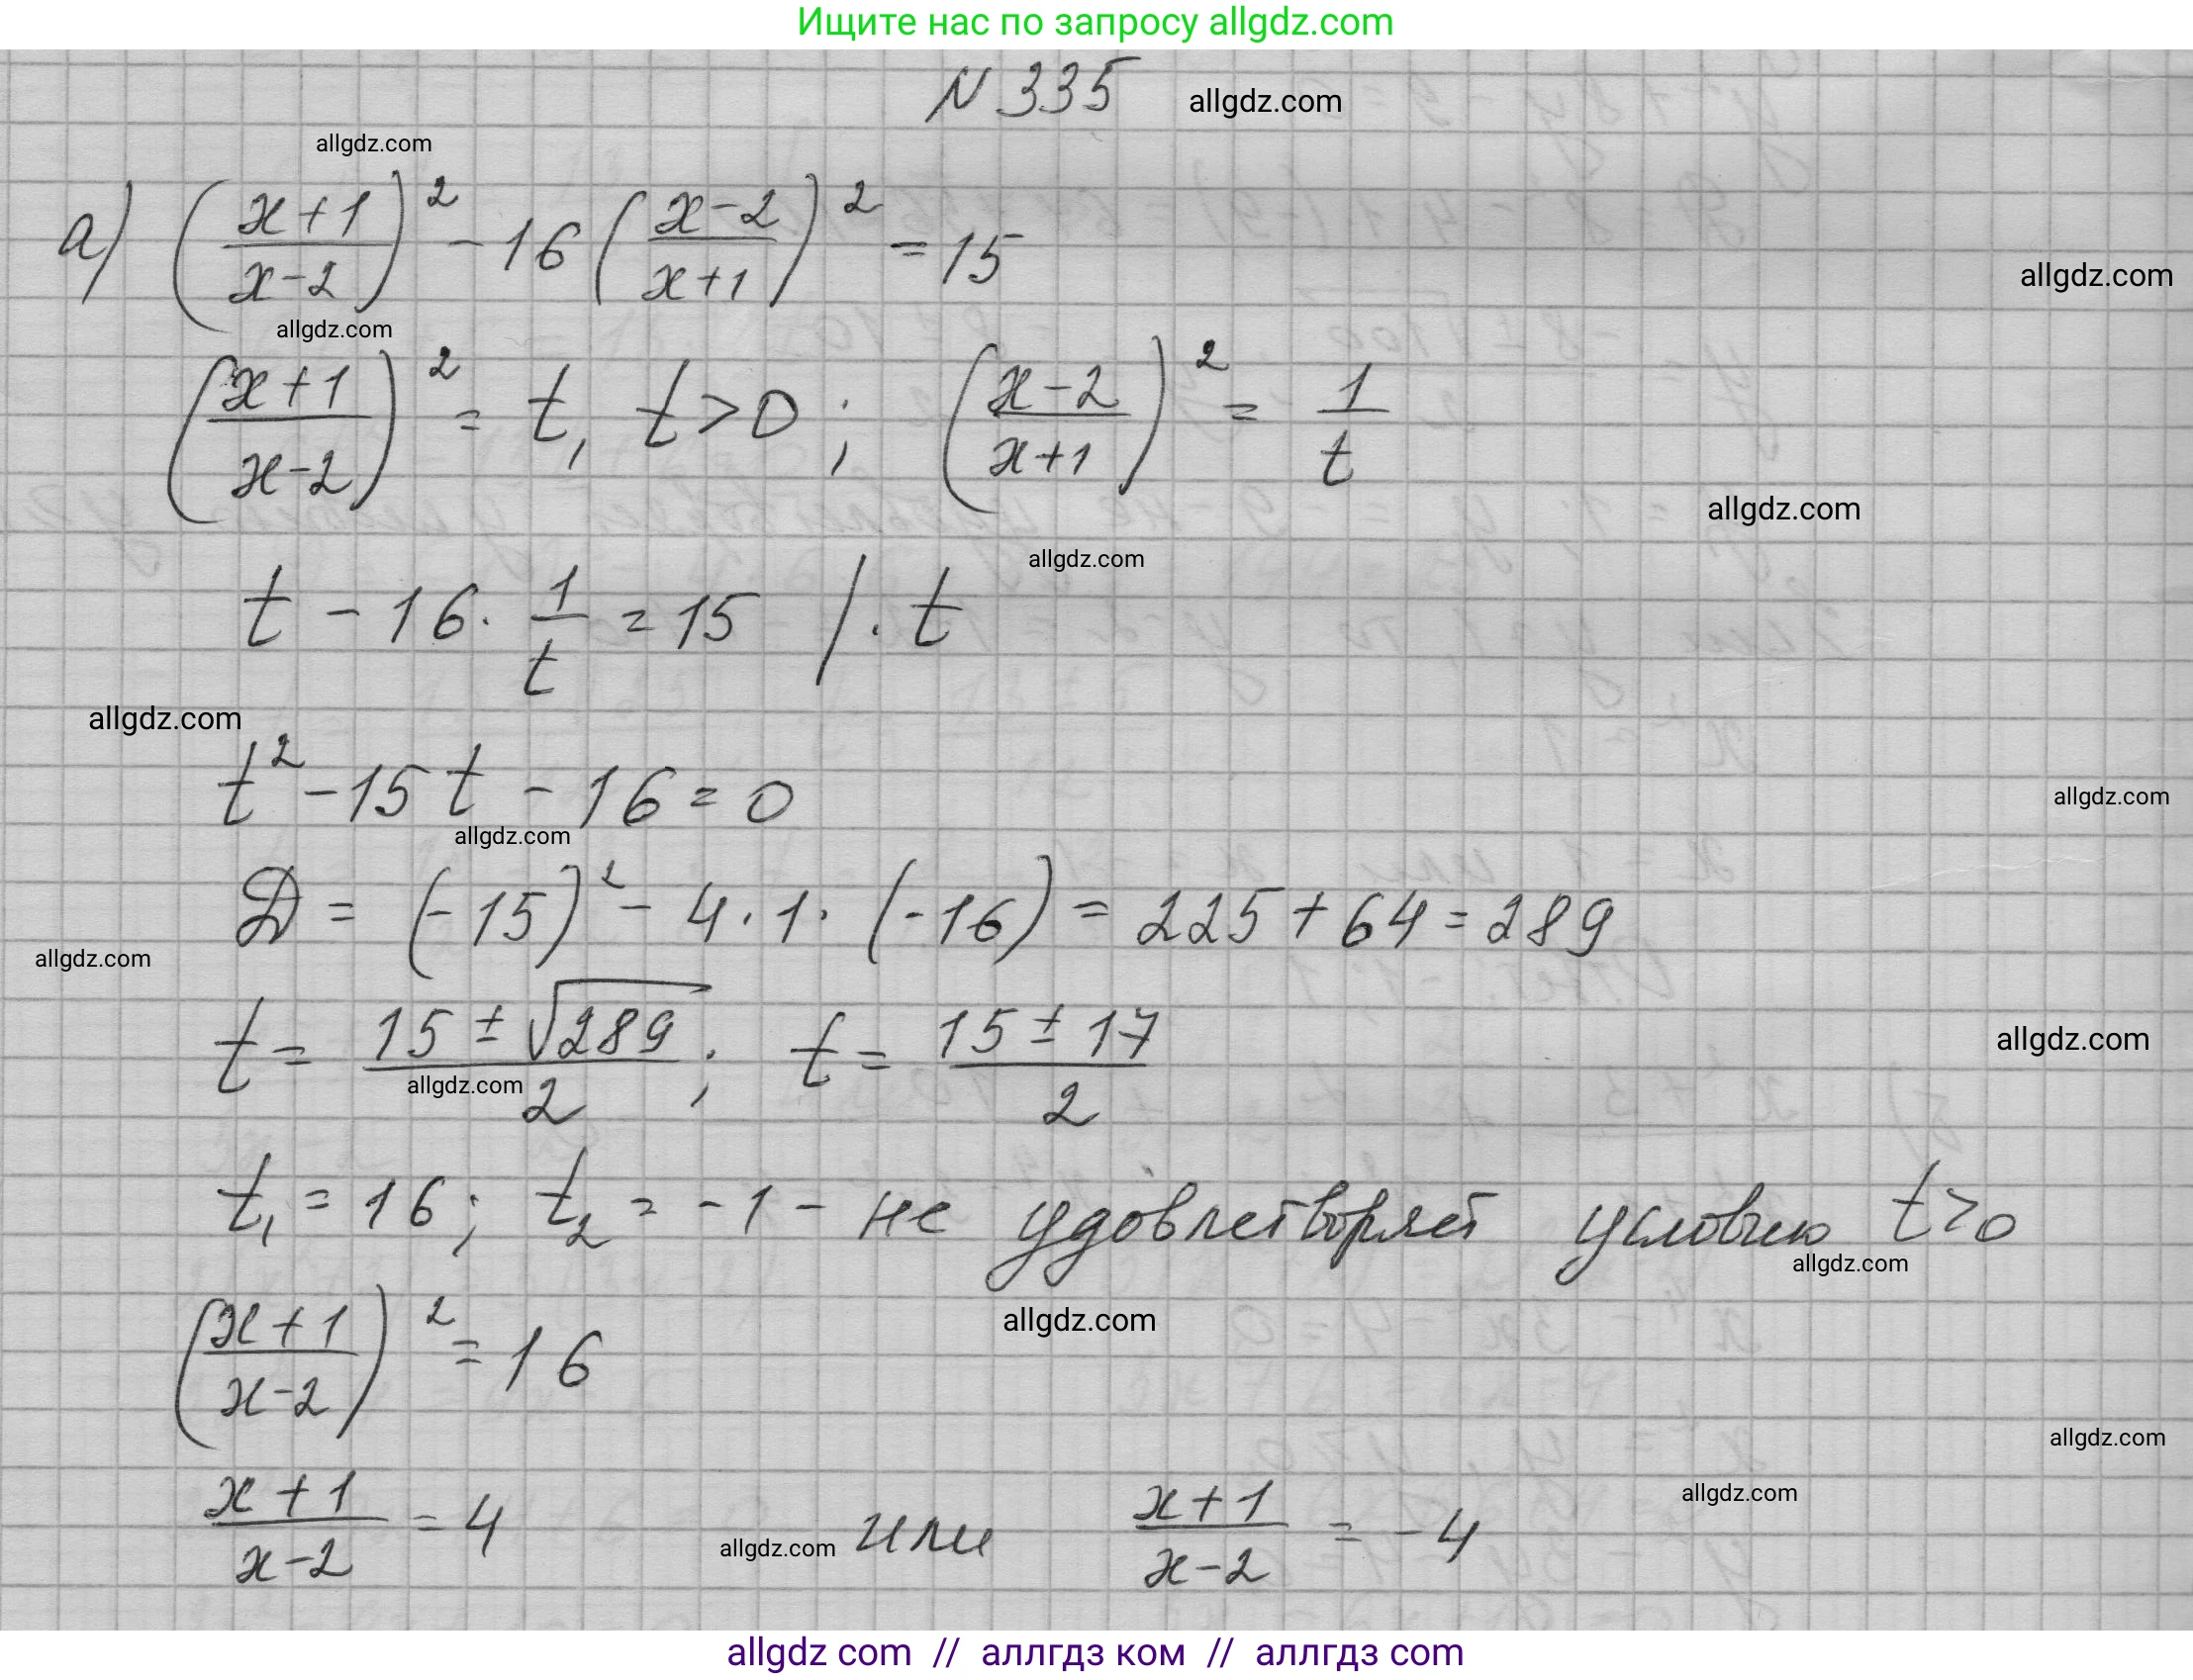 Ищите нас по запросу allgdz.com
N 335 allgdz.com
allgdz.com
а) ((x+1)/(x-2))² - 16((x-2)/(x+1))² = 15
allgdz.com
allgdz.com
((x+1)/(x-2))² = t, t>0; ((x-2)/(x+1))² = 1/t
allgdz.com
allgdz.com
t - 16 · 1/t = 15 / · t
allgdz.com
t² - 15t - 16 = 0
allgdz.com
allgdz.com
D = (-15)² - 4 · 1 · (-16) = 225 + 64 = 289
allgdz.com
t = (15 ± √289)/2; t = (15 ± 17)/2
allgdz.com
allgdz.com
t₁ = 16; t₂ = -1 - не удовлетворяет условию t>0
allgdz.com
allgdz.com
((x+1)/(x-2))² = 16
allgdz.com
allgdz.com
(x+1)/(x-2) = 4 allgdz.com или (x+1)/(x-2) = -4
allgdz com // аллгдз ком // аллгдз com